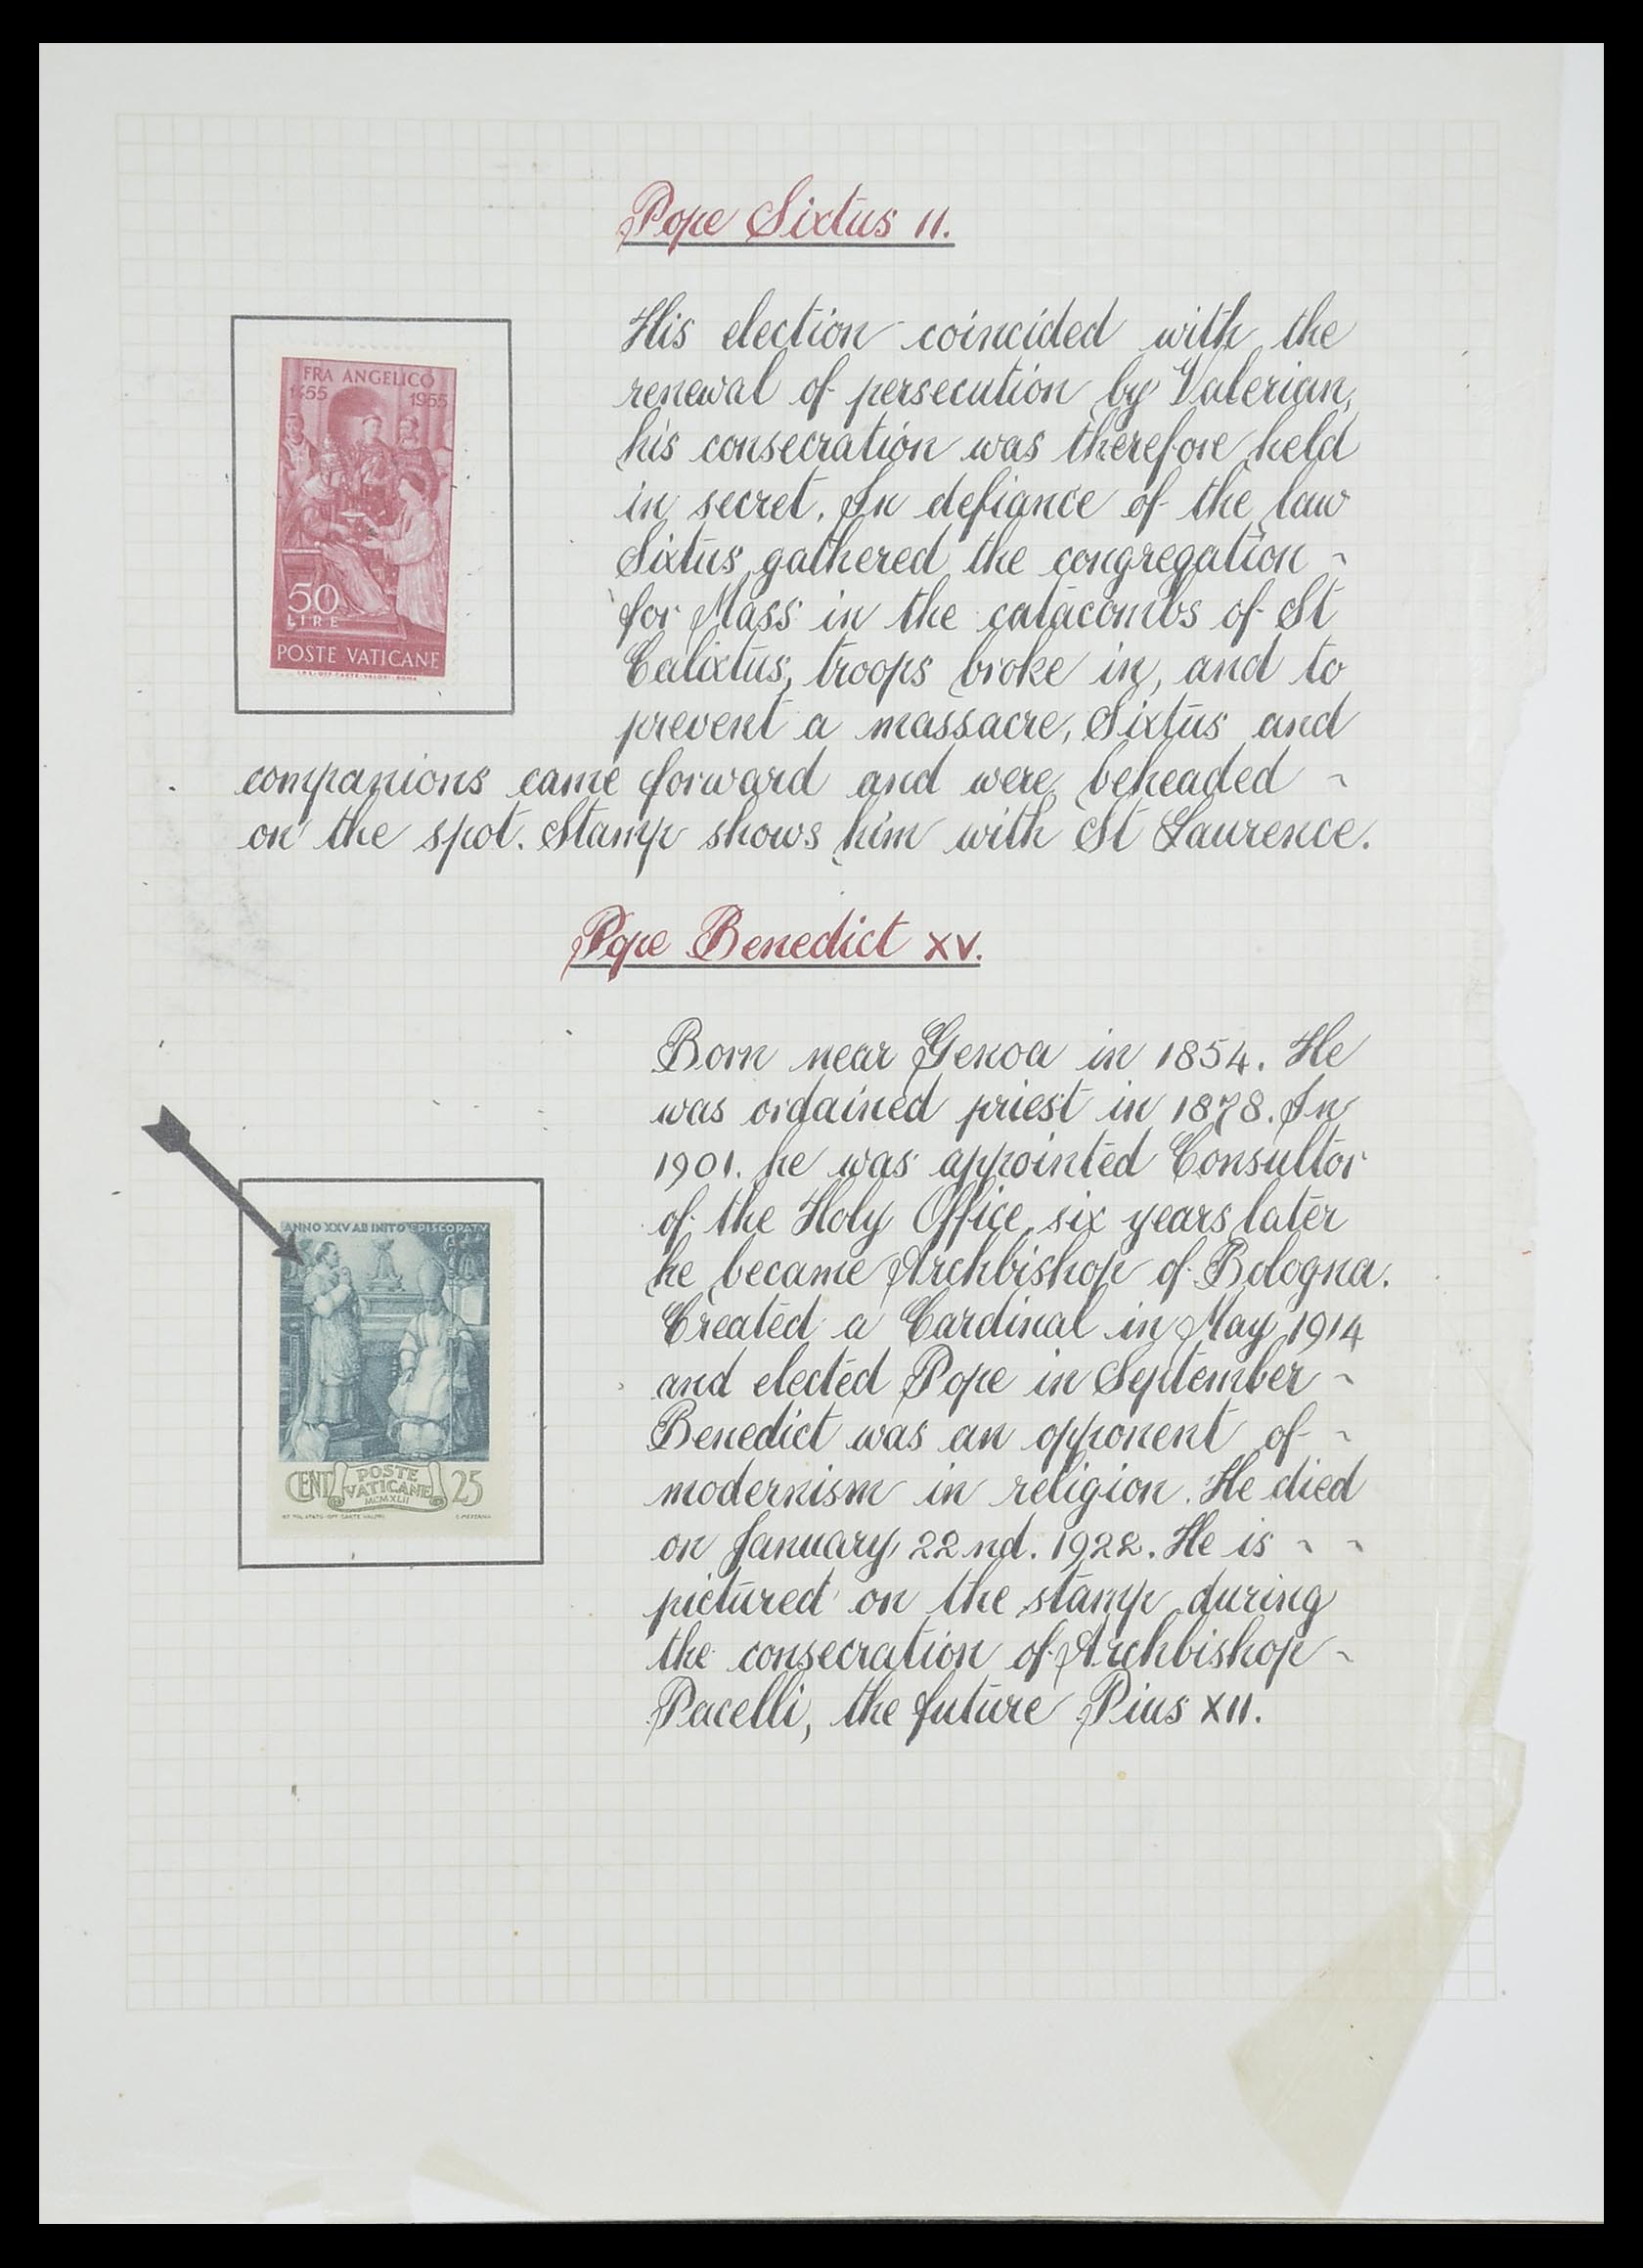 Pope Sixtus II.
FRA ANGELICO
1455 1955
50
LIRE
POSTE VATICANE
I.P.S. OFF. CARTE-VALORI-ROMA
His election coincided with the
renewal of persecution by Valerian,
his consecration was therefore held
in secret. In defiance of the law
Sixtus gathered the congregation ~
for Mass in the catacombs of St
Calixtus, troops broke in, and to
prevent a massacre, Sixtus and
companions came forward and were beheaded ~
on the spot. Stamp shows him with St Laurence.
Pope Benedict XV.
ANNO XXV AB INITO EPISCOPATV
CENT POSTE VATICANE 25
MCMXLII
Born near Genoa in 1854. He
was ordained priest in 1878. In
1901. he was appointed Consultor
of the Holy Office, six years later
he became Archbishop of Bologna.
Created a Cardinal in May 1914
and elected Pope in September ~
Benedict was an opponent of ~
modernism in religion. He died
on January 22nd. 1922. He is ~ ~
pictured on the stamp during
the consecration of Archbishop ~
Pacelli, the future Pius XII.